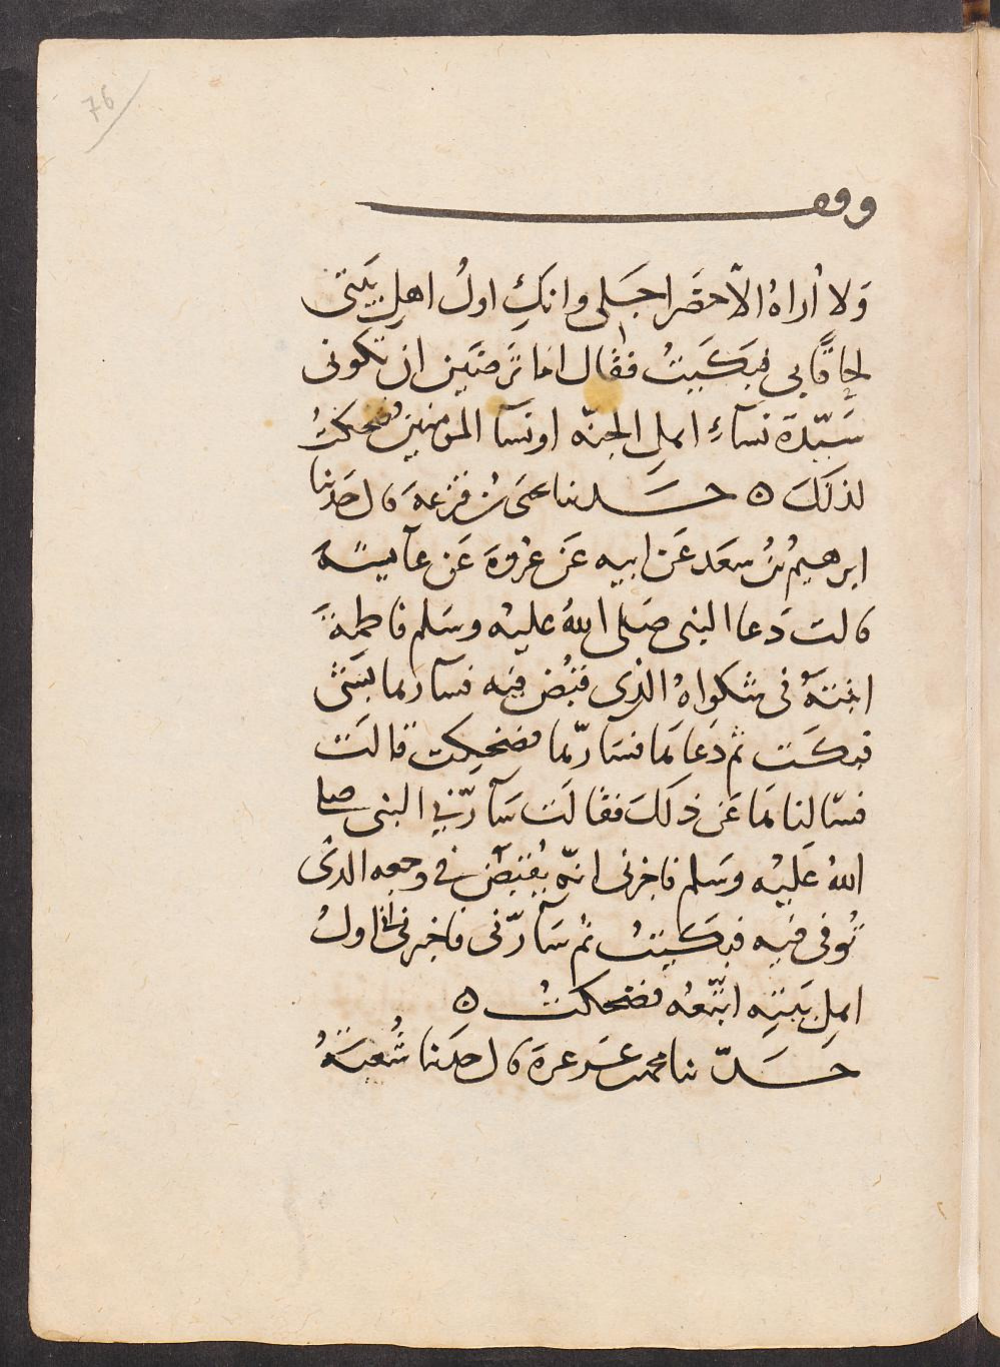 76
وقف
وَلا أُراهُ الّا حَضَر اجَلي وانكِ اولُ اهلِ بَيتى
لحاقًا بي فبَكَيتُ فقال اما تَرضَين ان تكونى
سَيّدة نسآءِ اهلِ الجنّه او نسآ المومنين فضحكتُ
لذلكَ ه حَدثنا يحيَى بن قزعهَ قال حَدثنا
ابرهيمُ بنُ سعَد عَن ابيه عَن عُروَةَ عَن عآيشهَ
قالت دَعا النبى صَلى اللهُ عليه وسَلم فاطمةَ
ابنتَهُ فى شكواهُ الذى قبُض فيه فسآرها بشىَ
فبكَت ثم دَعاهَا فسَآرّها فضحكت قالَت
فسَالناهَا عَن ذلكَ فقالَت سَآرّني النبى صلى
اللهُ عَليه وسَلم فاخبرنى انّه يُقبَض في وجعه الذى
تُوفى فيه فبَكيتُ ثم سَآرّنى فاخبرنى انى اولُ
اهلِ بَيتِه اتبَعُه فضحكتُ ه
حَدّثنا محمد بن عَرعرة قال حدَثنا شُعبَةُ